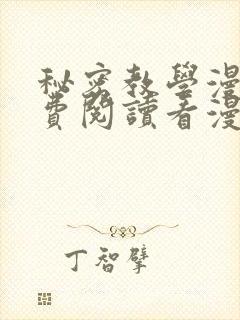 秘密教學漫
費閱讀看漫
丁智擘